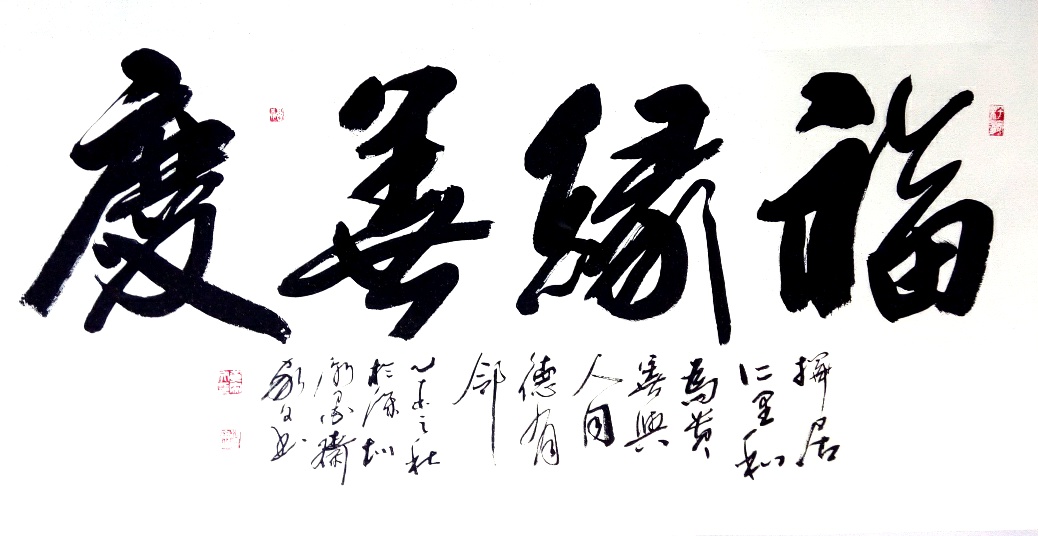 福緣善慶
擇居
仁里和
為貴
善與
人同
德有
鄰
乙未之秋
於深圳